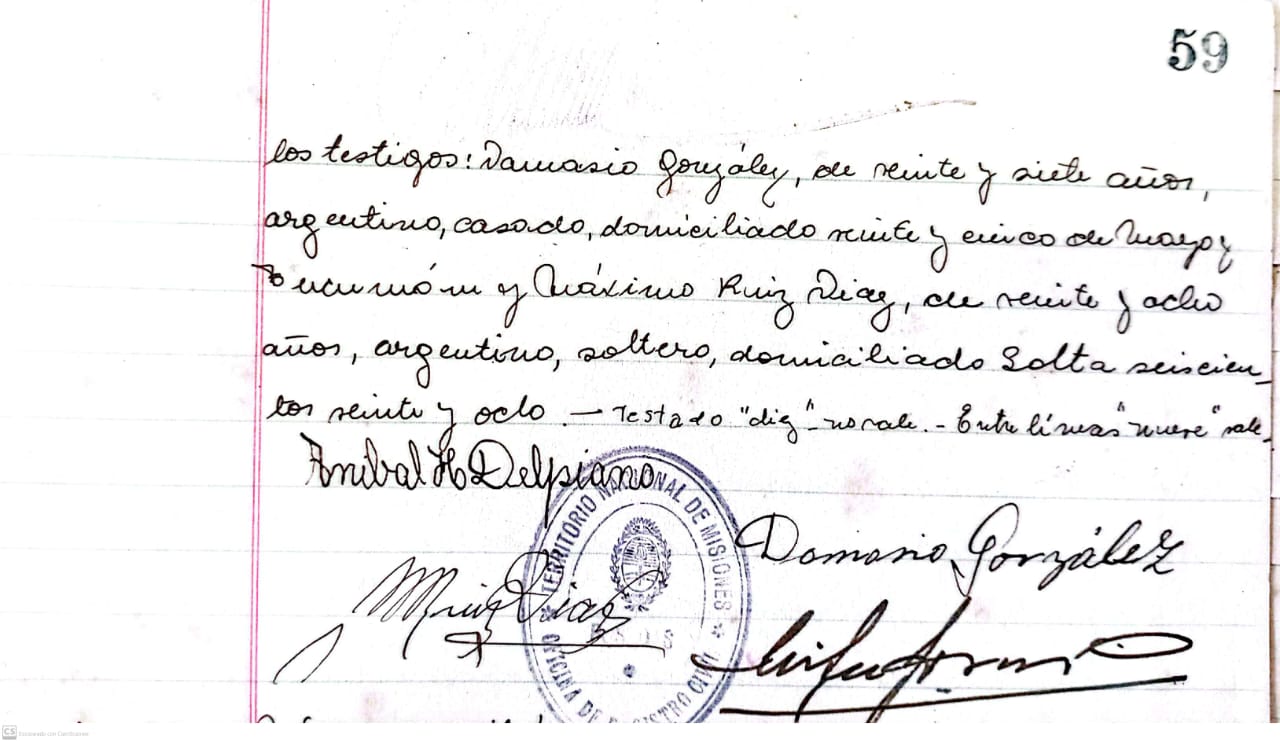 59
los testigos: Damasio González, de veinte y siete años,
argentino, casado, domiciliado veinte y cinco de Mayo y
Tucumán y Máximo Ruiz Diaz, de veinte y ocho
años, argentino, soltero, domiciliado Salta seiscien-
tos veinte y ocho. — Testado "diez" - no vale. - Entre líneas "nueve" vale.
Anibal H Delpiano
TERRITORIO NACIONAL DE MISIONES
Damasio González
MRuiz Diaz
OFICINA DE REGISTRO CIVIL
CS Escaneado con CamScanner